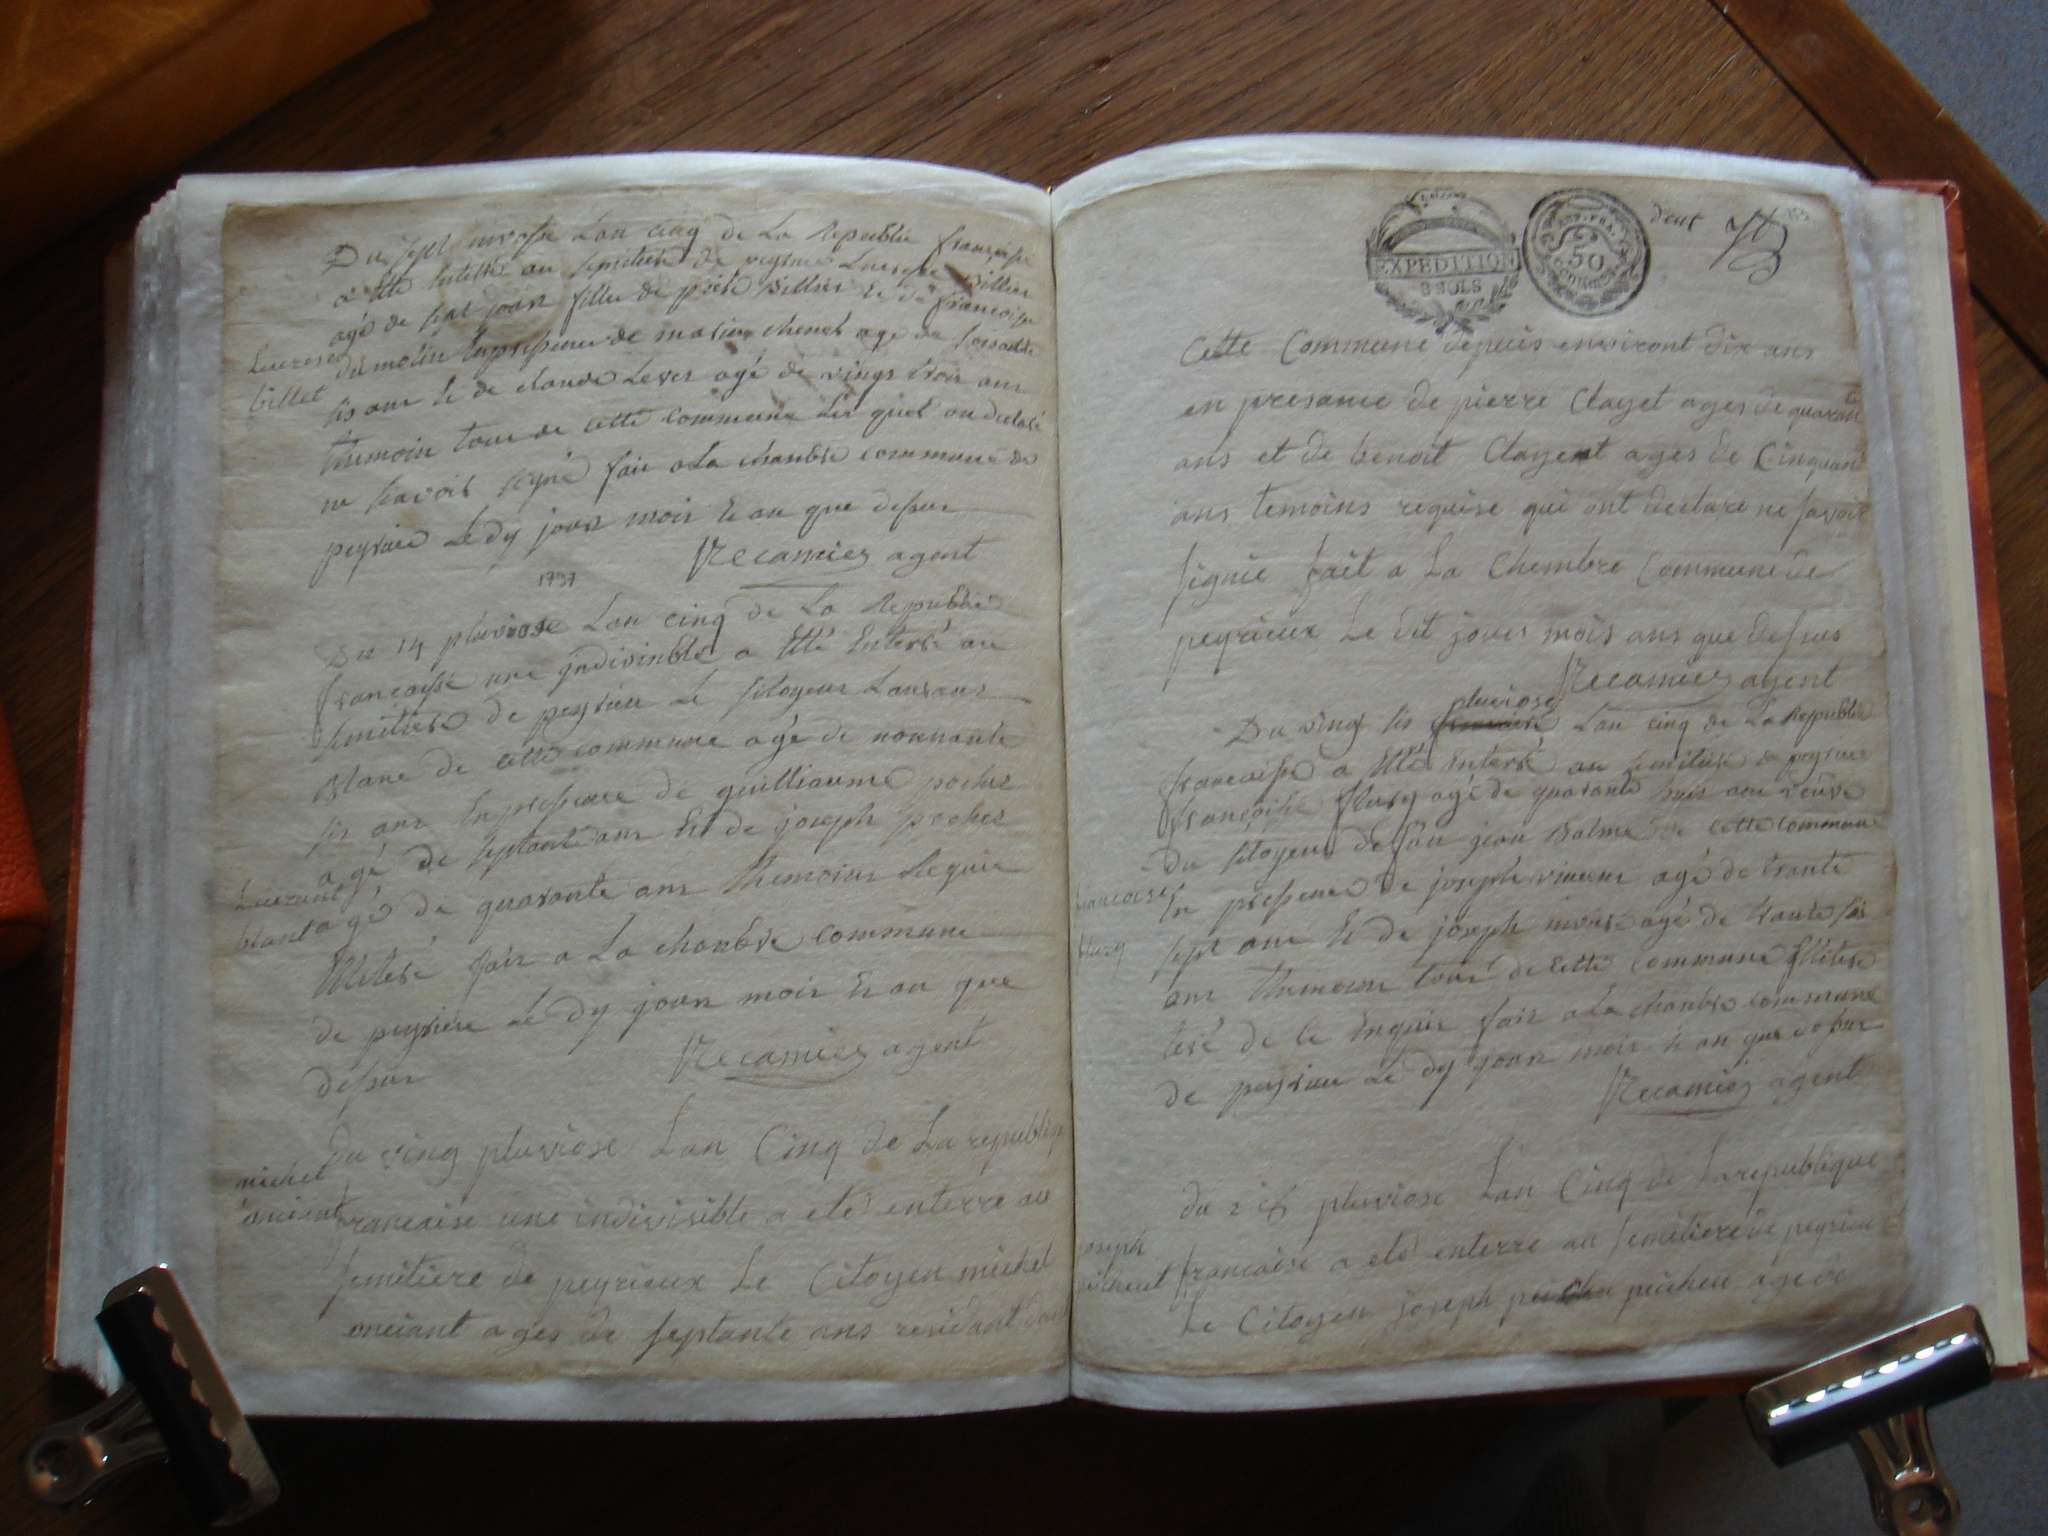 Du sept nivose Lan cinq de La Republie françoise
a Eté Enterré au semitiere de peyrieu Lucresse Billier
agé de sept jours fillie de piere Billier Et de françoise
Lucrese
billet
du molin En presence de chenet age de soisante
sis ans Et de claude agé de vingt trois ans
themoin tous de cette commune Les quels on declaré
ne savoir signé fair a La chambre commune de
peyrieu Le dy jour mois Et an que desus
Recamier agent
1797
Du 14 pluviose Lan cinq de La Republie
francoisse une jndivisible a Eté Enterré au
semitiere de peyrieu Le sitoyens Laurans
Blanc de cette commune agé de nonnante
sis ans En presence de guilliaume poches
agé de septante ans Et de joseph poches
Laurant
blant
agé de quarante ans themoins Requis
Elliteré fair a La chanbre commune
de peyrieu Le dy jour mois Et an que
desus
Recamier agent
michel
anciant
du ving pluviose Lan Cinq de La republiq
francaise une indivisible a eté enterre au
semitiere de peyrieux Le Citoyen michel
anciant ages de septante ans residant dans
EXPEDITION
8 SOLS
REP. FRA.
50
deut
Cette Commune depuis environt dix ans
en presance de pierre Clayet ages de quarante
ans et de benoit Clayent ages de Cinquant
ans temoins requise qui ont declare ne savoir
signié fait a La Chembre Commune de
peyrieux Le dit jours mois ans que desus
Recamier agent
pluviose
Du ving sis Lan cinq de La Republie
francoisse a Eté Enterré au semitiere de peyrieu
françoise flury agé de quarante huis ans veuve
du sitoyens defeu jean Balme de cette commune
francoise
flury
En presence de joseph vincent agé de trante
sept ans Et de joseph agé de trante sis
ans themoins tous de cette commune Ellitere
de ce Enquis fair a La chambre commune
de peyrieu Le dy jour mois Et an que desus
Recamier agent
du 26 pluviose Lan Cinq de La republique
joseph
francaise a eté enterre au semitiere de peyrieu
Le Citoyen joseph picheu agé de